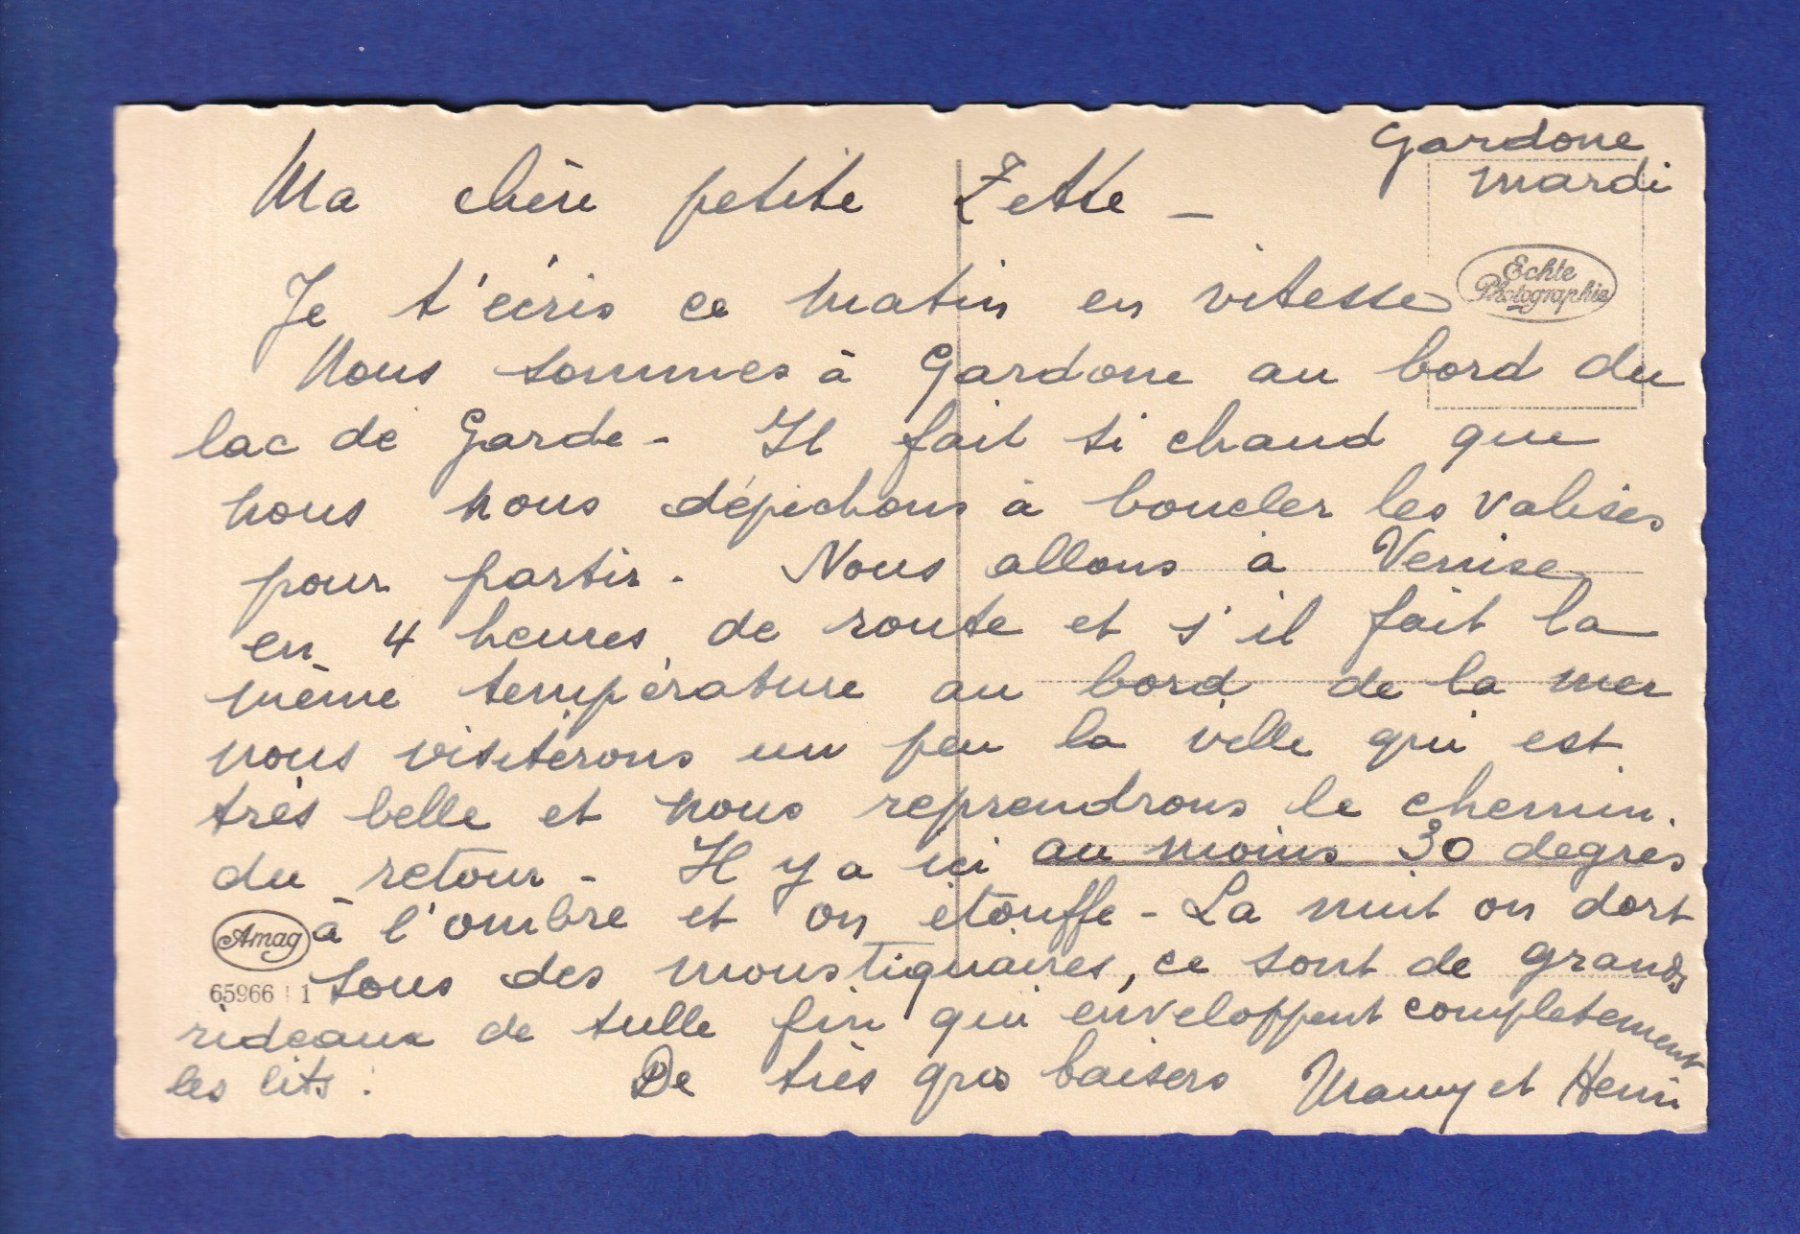 Gardone
mardi
Ma chère petite Zette –
Je t'écris ce matin en vitesse
Echte
Photographie
Nous sommes à Gardone au bord du
lac de Garde – Il fait si chaud que
nous nous dépêchons à boucler les valises
pour partir. Nous allons à Venise
en 4 heures de route et s'il fait la
même température au bord de la mer
nous visiterons un peu la ville qui est
très belle et nous reprendrons le chemin
du retour – Il y a ici au moins 30 degrés
à l'ombre et on étouffe – La nuit on dort
Amag
sous des moustiquaires, ce sont de grands
65966 1
rideaux de tulle fin qui enveloppent complètement
les lits. De très gros baisers Mamy et Henri